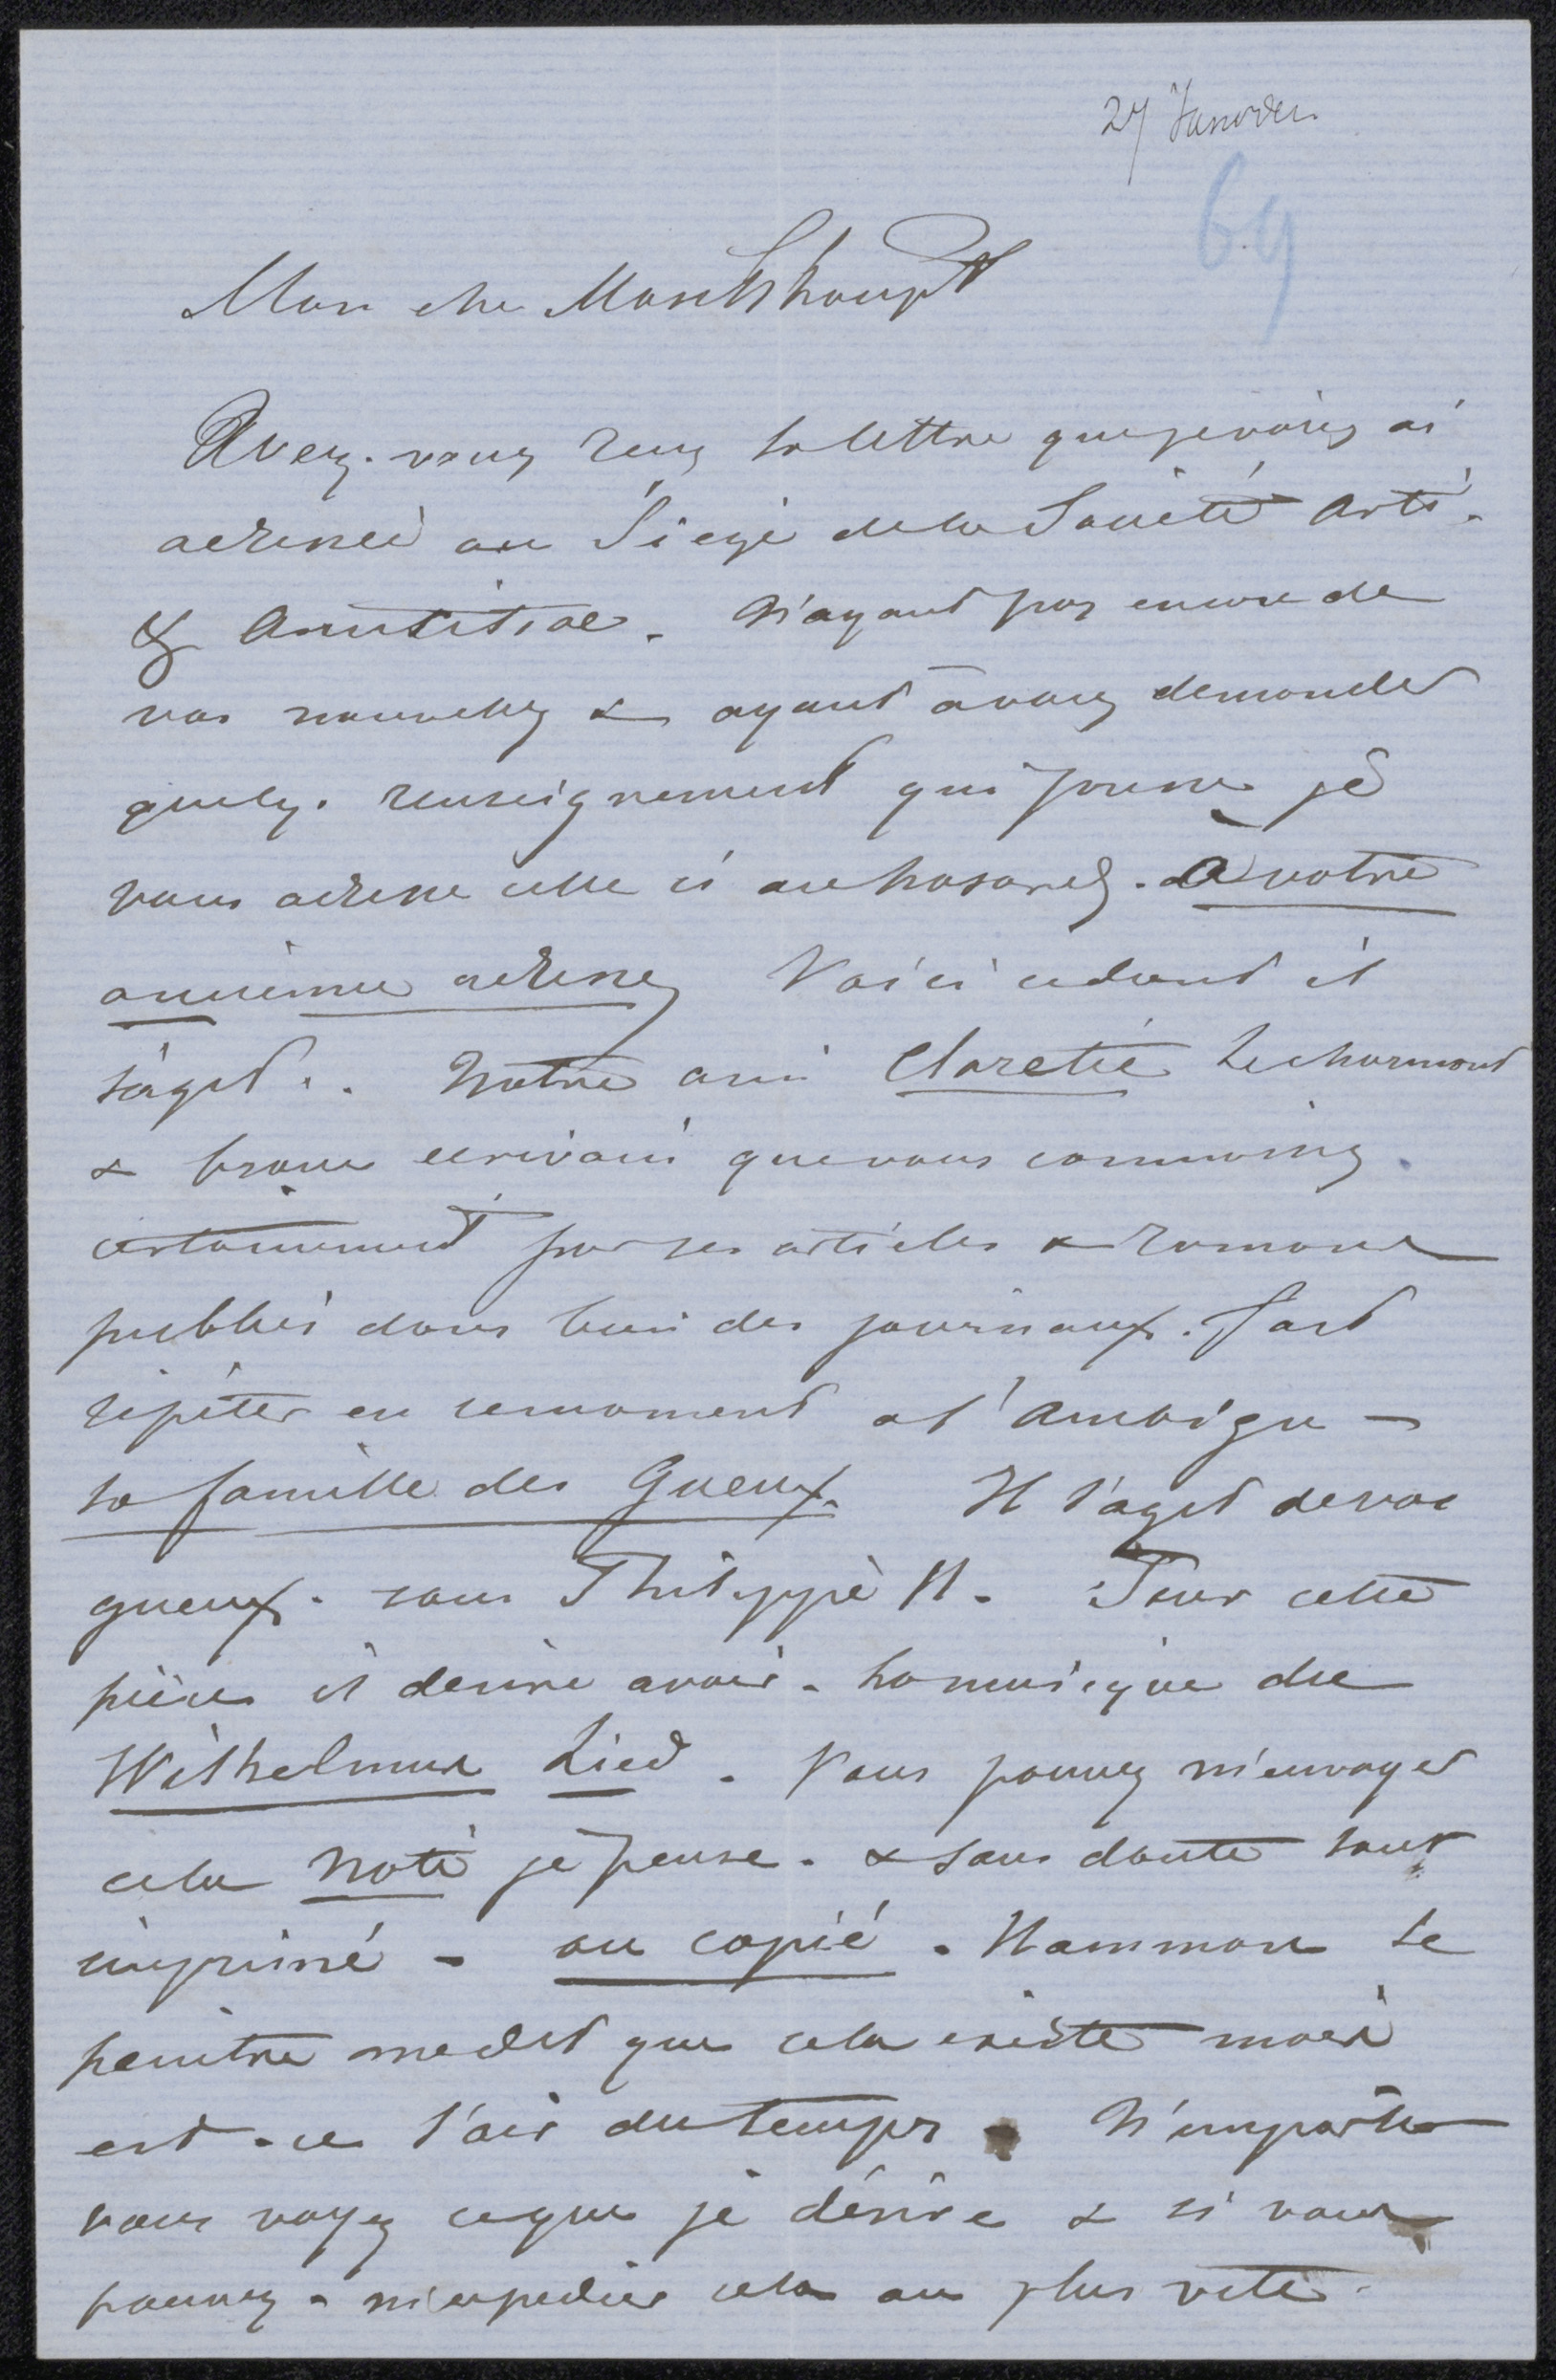 27 Janvier
69
Mon cher Monckshoupt
Avez-vous reçu la lettre que je vous ai
adressée au Siège de la Société Arti.
& Amicitiae. N'ayant pas encore de
vos nouvelles & ayant à vous demander
quelq. renseignement qui presse je
vous adresse celle ci au hasard. A votre
ancienne adresse Voici ce dont il
s'agit.. Notre ami Claretie le charmant
& brave ecrivain que vous connaissez
certainement par ses articles & romans
publiés dans tous des journaux. Fait
répéter en ce moment a l'Ambigu -
la famille des Gueux Il s'agit de vos
gueux. sous Philippe II. Pour cette
pièce il desire avoir. la musique du
Wilhelmus Lied. Vous pouvez m'envoyer
cela noté je pense. & sans doute tout
imprimé - ou copié. Hamman le
peintre me dit que cela existe mais
est-ce l'air du temps. N'importe
vous voyez ce que je désire & si vous
pouvez - m'expedier cela au plus vite.